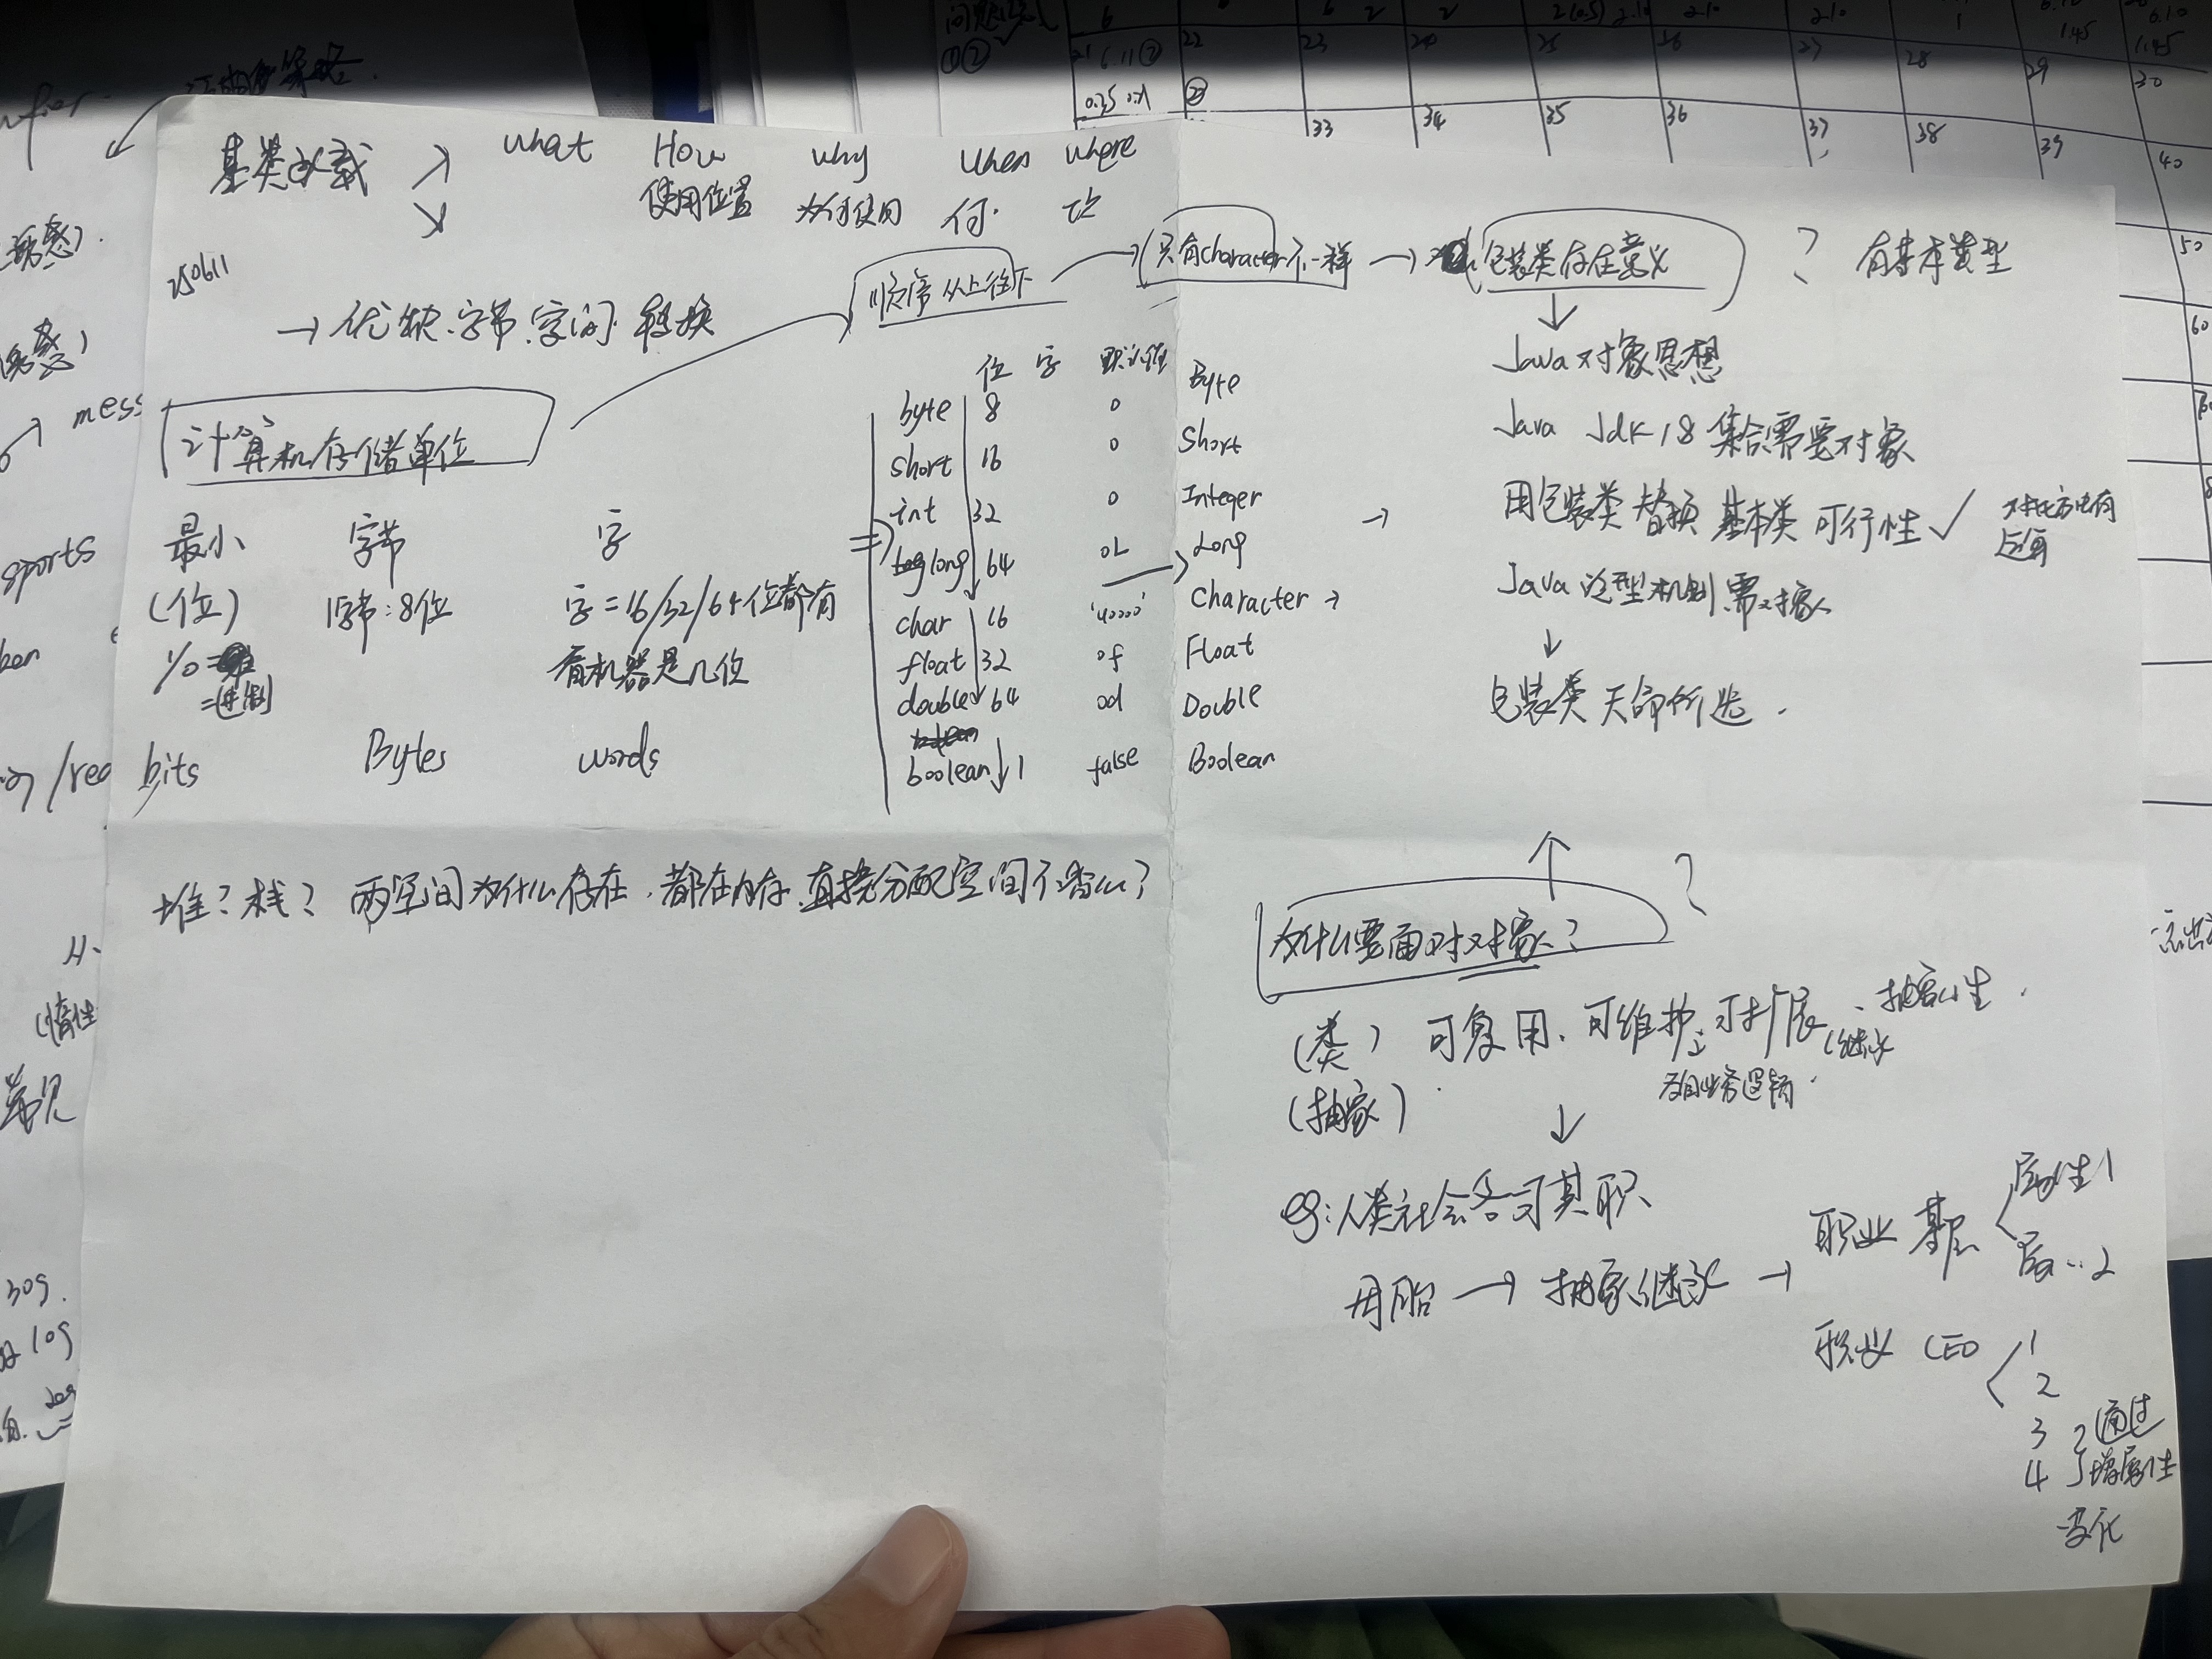 what How why when where
使用位置 为何使用 何.
250611
→ 优缺.字节.字间.转换
顺序从上往下 → 只有character不一样 → 包装类存在意义 ? 有基本类型
计算机存储单位
最小 字节 字
(位) 1字节:8位 字=16/32/64位都有
1/0=二进制 看机器是几位
bits Bytes words
位 字 默认值
byte 8 0 Byte
short 16 0 Short
int 32 0 Integer
long 64 0L Long
char 16 'u0000' Character →
float 32 0f Float
double 64 0d Double
boolean 1 false Boolean
Java对象思想
Java Jdk 18 集合需要对象
用包装类替换基本类可行性✓
Java 泛型机制.需对象
包装类天命所选.
堆?栈? 两空间为什么存在.都在内存.直接分配空间不香么?
为什么要面对对象? ?
(类) 可复用.可维护.可扩展、抽象性.
(继承
(抽象)
eg:人类社会各司其职
用胎 → 抽象继承 → 职业 基层 属性1
属..2
职业 CEO 1
2
3
4
通过
增属性
变化